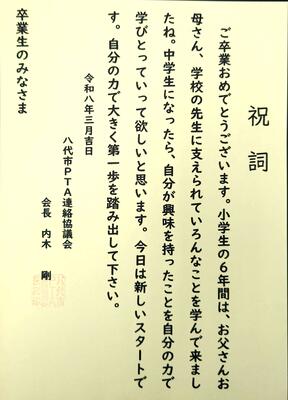 祝詞
ご卒業おめでとうございます。小学生の6年間は、お父さんお
母さん、学校の先生に支えられていろんなことを学んで来まし
たね。中学生になったら、自分が興味を持ったことを自分の力で
学びとっていって欲しいと思います。今日は新しいスタートで
す。自分の力で大きく第一歩を踏み出して下さい。
令和八年三月吉日
八代市PTA連絡協議会
会長 内木 剛
卒業生のみなさま